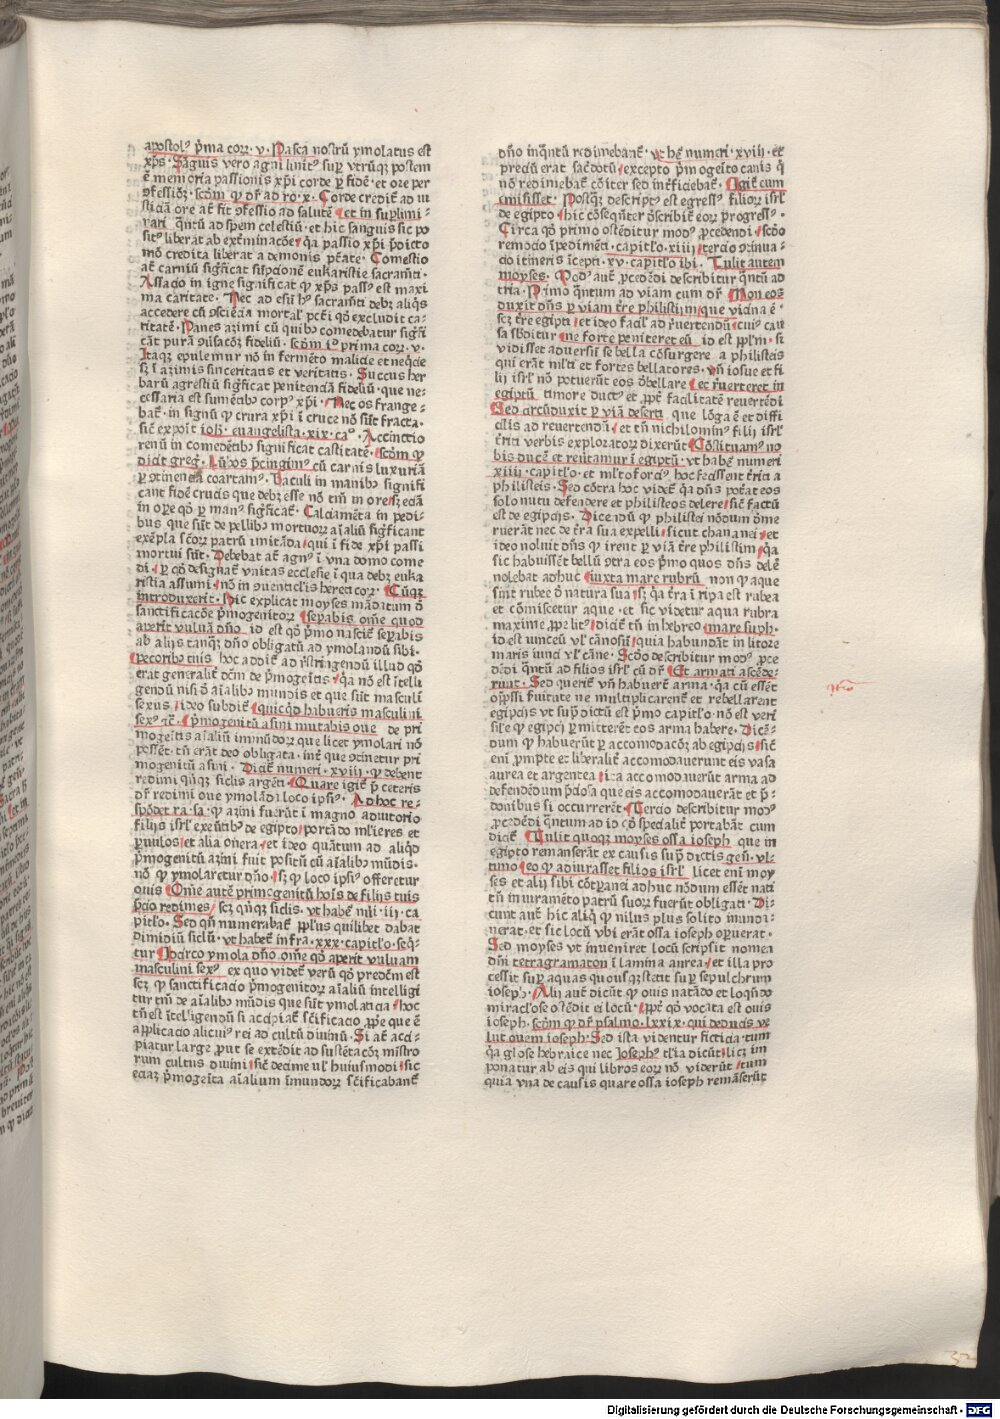 apostolꝰ p̄ma corꝝ · v · Pasca nostrū ymolatus est
xp̄s · Sāguis vero agni linitꝰ suꝑ vtrūqꝫ postem
ē memoria passionis xp̄i corde ꝑ fidē · et ore per
ꝯfessiōꝫ · scd̄m ꝙ dr̄ ad ro · x · Corde credit̄ ad iu
sticiā ore at̄ fit ꝯfessio ad salutē et in suꝑlimi⸗
nari qn̄tū ad spem celestiū · et hic sanguis sic po
sitꝰ liberat ab exterminacōe q̄a passio xp̄i p̄dicto
mō credita liberat a demonis p̄tāte · Comestio
at̄ carniū sig̅ficat sūpcionē eukaristie sacram̄ti ·
Assacio in igne significat ꝙ xp̄s passꝰ est maxi
ma caritate · Nec ad esū hꝰ sacram̄ti debꝫ aliq̄s
accedere cū ꝯsciēcia mortalꝭ pctī qd̄ excludit ca⸗
ritatē · Panes azimi cū quibꝰ comedebatur sig̅fi
cāt purā ꝯūsacōꝫ fideliū · scd̄m iđ prima corꝝ · v ·
Itaqꝫ epulemur nō in fermēto malicie et neq̄cie
sꝫ ī azimis sinceritatis et veritatis · Succus her
barū agrestiū sig̅ficat penitenciā fideliū · que ne⸗
cessaria est sumētibꝰ corpꝰ xp̄i · Nec os frange⸗
bat̄ · in signū ꝙ crura xp̄i ī cruce nō sūt fracta ·
sic̄ expōit ioh̄ · euangelista · xix · caº · Accinctio
renū in comedētibꝰ significat castitatē · scd̄m ꝙ
dicit greg̅ · Lūbos p̄cingimꝰ cū carnis luxuriā
ꝑ ꝯtinenciā coartamꝰ · Baculi in manibꝰ signifi
cant fidē crucis que debꝫ esse nō tm̄ in ore sꝫ eciā
in oꝑe qd̄ ꝑ manꝰ sig̅ficat̄ · Calciamēta in pedi⸗
bus que sūt de pellibꝰ mortuoꝝ aīaliū sig̅ficant
exēpla sc̄oꝝ patrū imitāda qui ī fide xp̄i passi
mortui sūt · Debebat at̄ agnꝰ ī vna domo come
di · ꝑ qd̄ designat̄ vnitas ecclesie ī qua debꝫ euka
ristia assumi nō in ꝯuenticlīs hereticoꝝ · Cūqꝫ
introduxerit · Hic explicat moyses mādatum d̄
sanctificacōe p̄mogenitoꝝ sepabis om̄e quod
aperit vuluā dn̄o id est qd̄ p̄mo nascit̄ sepabis
ab alijs tanqꝫ dn̄o obligatū ad ymolandū sibi ·
pecoribꝰ tuis hoc addit̄ ad r̄stringendū illud qd̄
erat generalit̄ dc̄m de p̄mogeītis q̄a nō est ītelli
gendū nisi d̄ aīalibꝰ mundis et que sūt masculī
sexus ideo subdit̄ quicqd̄ habueris masculini
sexꝰ ⁊c̄ · P̄mogenitū asini mutabis oue de pri
mogeītis aīaliū īmūdoꝝ que licet ymolari nō
possēt tn̄ erāt deo obligata · int̄ que ꝯtinetur pri
mogenitū asini · Dicit̄ numeri · xviii · ꝙ debent
redimi qn̄qꝫ siclis argēti · Quare igit̄ p̄ ceteris
dr̄ redimi oue ymolādi loco ipsiꝰ · Ad hoc re⸗
spōdet ra · sa · ꝙ azini fuerūt ī magno adiutorio
filijs isrl̄ exeūtibꝰ de egipto portādo ml̄ieres et
ꝑuulos et alia onera et ideo quātum ad aliqd̄
p̄mogenitū azini fuit positū cū aīalibꝰ mūdis ·
nō ꝙ ymolaretur dn̄o sꝫ ꝙ loco ipsiꝰ offeretur
ouis Om̄e autē primogenitū hoīs de filijs tuis
p̄cio redimes scꝫ qn̄qꝫ siclis · vt habet̄ nūi · iii · ca
pitl̄o · Sed qn̄ numerabat̄ ppl̄us quilibet dabat
dimidiū siclū · vt habet̄ infra · xxx · capitl̄o · seqͥ⸗
tur Idarco ymola dn̄o om̄e qd̄ aperit vuluam
masculini sexꝰ ex quo videt̄ verū qd̄ predc̄m est
scꝫ ꝙ sanctificacio p̄mogenitoꝝ aīaliū intelligi
tur tm̄ de aīalibꝰ mūdis que sūt ymolaticia hoc
tn̄ est ītelligendū si accipiat̄ sc̄ificacio ꝓprie que ē
applicacio alicuiꝰ rei ad cultū diuinū · Si at̄ acci⸗
piatur large ꝓut se extēdit ad sustētacōꝫ mīstro
rum cultus diuini sic̄ decime vl̓ huiusmodi sic
eciaꝫ p̄mogeīta aīalium īmundoꝝ sc̄ificabant̄
dn̄o inqn̄tū redimebant̄ · vt het̄ numeri · xviii · et
preciū erat sacdotū excepto p̄mogeīto canis q̄
nō redimebat̄ cōiter sed int̄ficiebat̄ · Igit̄ cum
emisisset · Postqꝫ descriptꝰ est egressꝰ filioꝝ isrl̄
de egipto hic cōseqn̄ter d̄scribit̄ eoꝝ ꝓgressꝰ ·
Circa qd̄ primo ostēditur modꝰ ꝓcedendi scd̄o
remocio īpedimēti · capitl̄o · xiiij tercio ꝯtinua⸗
cio itineris īcepti · xv · capitl̄o ibi · Tulit autem
moyses · Modꝰ aut̄ ꝓcedēdi describitur qn̄tū ad
tria · Primo qn̄tum ad viam cum dr̄ Non eos
duxit dn̄s ꝑ viam t̄re philistijm que vicina ē ·
scꝫ t̄re egipti et ideo facil̓ ad r̄uertendū cuiꝰ cau
sa sb̄ditur ne forte peniteret eū id est ppl̄m · si
vidisset aduersū se bella cōsurgere a philisteis
qui erāt ml̄ti et fortes bellatores · vn̄ iosue et fi
lij isrl̄ nō potuerūt eos d̄bellare et r̄uerteret in
egiptū timore ductꝰ et ꝓpt̄ facilitatē reuertēdi
Sed circūduxit ꝑ viā deserti que lōga ē et diffi
cilis ad reuertendū et tn̄ nichilominꝰ filij isrl̄
t̄riti verbis exploratoꝝ dixerūt Cōstituamꝰ no
bis ducē et reūtamur ī egiptū · vt habet̄ numeri
xiiij · capitl̄o · et ml̄to forciꝰ hoc fecissent t̄riti a
philisteis · Sed cōtra hoc videt̄ q̄a dn̄s poterat eos
solo nutu defendere et philisteos delere sic̄ factū
est de egipcijs · Dicendū ꝙ philistei nōdum d̄me
ruerāt nec de t̄ra sua expelli sicut chananei et
ideo noluit dn̄s ꝙ irent ꝑ viā t̄re philistijm q̄a
sic habuissēt bellū ꝯtra eos p̄mo quos dn̄s delē
nolebat adhuc iuxta mare rubrū non ꝙ aque
sint rubee d̄ natura sua sꝫ q̄a t̄ra ī ripa est rubea
et cōmiscetur aque · et sic videtur aqua rubra
maxime ꝓpe litꝰ dicit̄ tn̄ in hebreo mare suph ·
id est iunceū vl̓ cānosū quia habundāt in litore
maris iunci vl̓ cāne · Scd̄o describitur modꝰ ꝓce
dēdi qn̄tū ad filios isrl̄ cū dr̄ Et armati ascēde⸗
runt · Sed querit̄ vn̄ habuert̄ arma q̄a cū essēt
oppssi ſuitute ne multiplicarent̄ et rebellarent
egipcijs vt sup̄ dictū est p̄mo capitl̄o · nō est veri
sil̓e ꝙ egipcij ꝑmitterēt eos arma habere · Dicē⸗
dum ꝙ habuerūt ꝑ accomodacōꝫ ab egipcijs sic̄
enī ꝓmpte et liberalit̄ accomodauerunt eis vasa
aurea et argentea ita accomodauerūt arma ad
defendendum p̄ciosa que eis accomodauerāt et p̄⸗
donibus si occurrerēt · Tercio describitur modꝰ
ꝓcedēdi qn̄tum ad id qd̄ specialit̄ portabāt cum
dicit̄ Tulit quoqꝫ moyses ossa ioseph que in
egipto remanserāt ex causis sup̄ dictis gen̄ · vl⸗
timo eo ꝙ adiurasset filios isrl̄ licet enī moy
ses et alij sibi cōtpanei adhuc nōdum essēt nati
tn̄ in iuramēto patrū suoꝝ fuerūt obligati · Di⸗
cunt aut̄ hic aliq̄ ꝙ nilus plus solito inundā⸗
uerat · et sic locū vbi erāt ossa ioseph oꝑuerat ·
Sed moyses vt inueniret locū scripsit nomen
dn̄i tetragramaton ī lamina aurea et illa pro
cessit suꝑ aquas quousqꝫ stetit suꝑ sepulchrum
ioseph · Alij aut̄ dicūt ꝙ ouis natādo et loqn̄do
miracl̓ose ostēdit ei locū ꝓpt̄ qd̄ vocata est ouis
ioseph · scd̄m ꝙ dr̄ psalmo · lxxix · qui deducis ve
lut ouem ioseph Sed ista videntur ficticia · tum
q̄a glose hebraice nec Iosephꝰ tl̄ia dicūt licꝫ im
ponatur ab eis qui libros eoꝝ nō viderūt tum
quia vna de causis quare ossa ioseph remāserūt
32
Digitalisierung gefördert durch die Deutsche Forschungsgemeinschaft · DFG